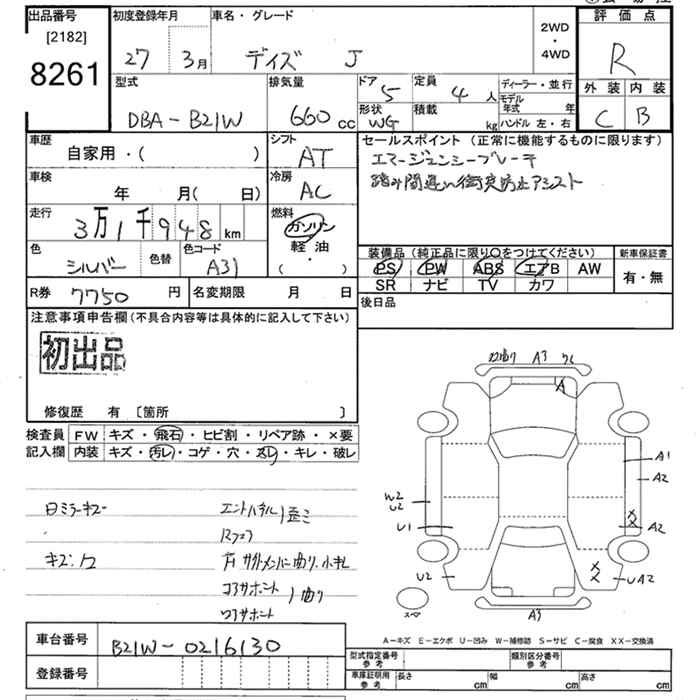 出品番号
[2182]
8261
初度登録年月
27 3月
車名・グレード
デイズ J
2WD
・
4WD
評価点
R
外装 内装
C B
型式
DBA-B21W
排気量
660 cc
ドア
5
定員
4人
形状
WG
積載
kg
ディーラー・並行
モデル年式 年
ハンドル 左・右
車歴
自家用・( )
シフト
AT
車検
年 月( 日)
冷房
AC
走行
3万1千948 km
燃料
ガソリン
軽・油
( )
色
シルバー
色替
色コード
A31
R券 7750 円
名変期限 月 日
セールスポイント(正常に機能するものに限ります)
エマージェンシーブレーキ
踏み間違い衝突防止アシスト
装備品(純正品に限り〇をつけてください)
PS PW ABS エアB AW
SR ナビ TV カワ
新車保証書
有・無
後日品
注意事項申告欄(不具合内容等は具体的に記入して下さい)
初出品
修復歴 有 〔箇所 〕
検査員記入欄
FW キズ・飛石・ヒビ割・リペア跡・×要
内装 キズ・汚レ・コゲ・穴・スレ・キレ・破レ
A3
A
A1
A2
W2
U2
U1
X
X
A2
U2
X
X
UA2
スペア
A3
A-キズ E-エクボ U-凹み W-補修跡 S-サビ C-腐食 XX-交換済
車台番号 B21W-0216130
登録番号
型式指定番号
参考
類別区分番号
参考
車庫証明用
参考
長さ cm
幅 cm
高さ cm